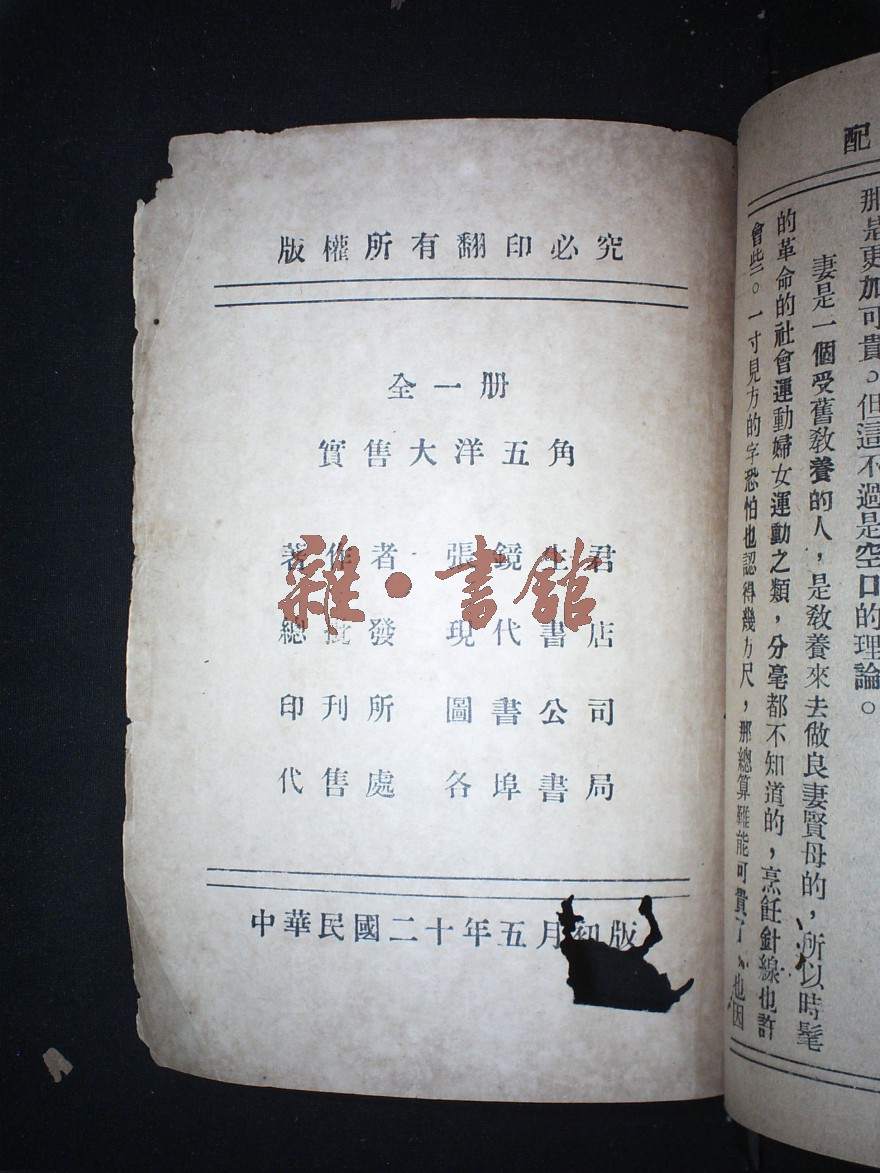 版權所有翻印必究
全一册
實售大洋五角
著作者 張鏡生君
總批發 現代書店
印刊所 圖書公司
代售處 各埠書局
中華民國二十年五月初版
雜·書館
配
那是更加可貴。但這不過是空口的理論。
妻是一個受舊敎養的人，是敎養來去做良妻賢母的，所以時髦
的革命的社會運動婦女運動之類，分毫都不知道的，烹飪針線也許
會些。一寸見方的字恐怕也認得幾方尺，那總算難能可貴了、也因